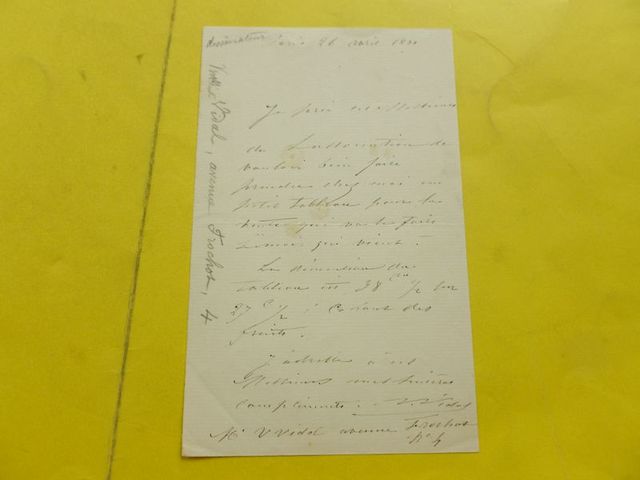 dessinateur
Paris 26 avril
Je prie ces Messieurs
de l'administration de
vouloir bien faire
prendre chez moi un
petit tableau pour la
vente qui va se faire
qui vient.
La dimension du
tableau est 38 c 1/2 sur
27 c 1/2
fruits.
J'adresse à ces
Messieurs mes sincères
compliments. V. Vidal
Mr V Vidal avenue Frochot
N° 4
Vidal, avenue Frochot, 4